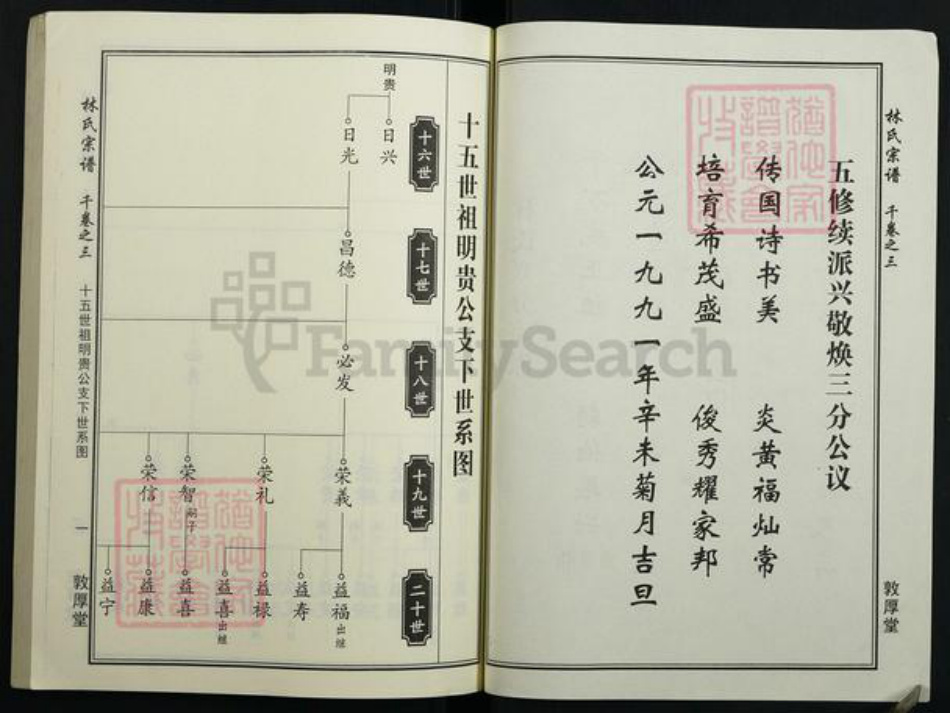 林氏宗谱 千卷之三
敦厚堂
五修续派兴敬焕三分公议
传国诗书美 炎黄福灿常
培育希茂盛 俊秀耀家邦
公元一九九一年辛未菊月吉旦
十五世祖明贵公支下世系图
十六世
十七世
十八世
十九世
二十世
明贵
日兴
日光
昌德
必发
荣義
荣礼
荣智 嗣子
荣信
益福 出继
益寿
益禄
益喜 出继
益喜
益康
益宁
林氏宗谱 千卷之三 十五世祖明贵公支下世系图 一 敦厚堂
FamilySearch